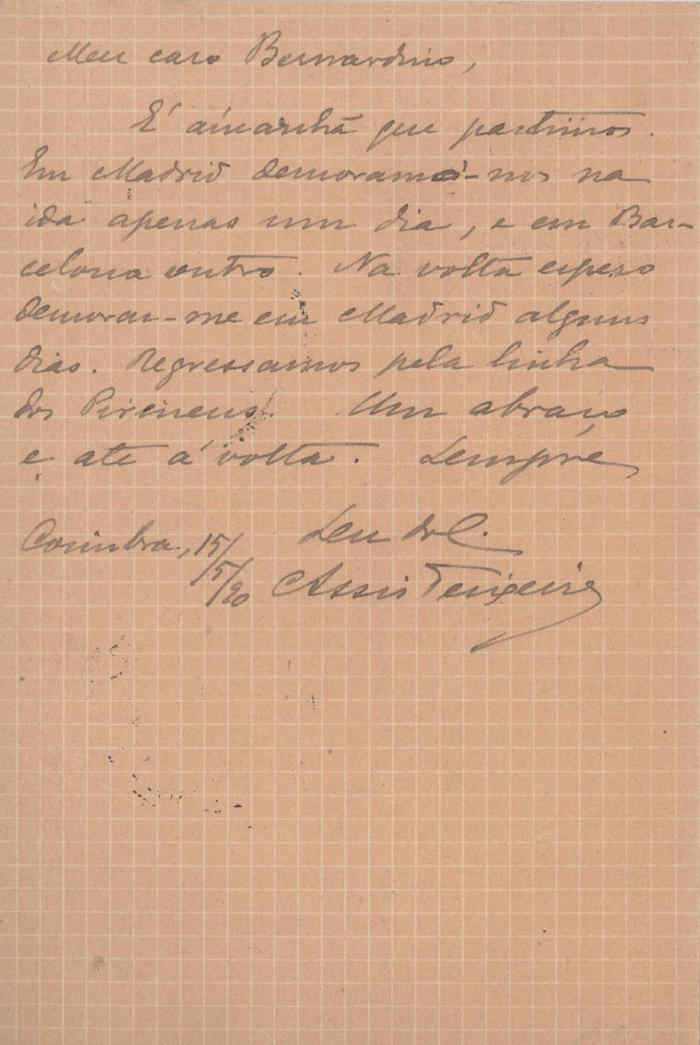 Meu caro Bernardino,
É amanhã que partimos.
Em Madrid demoramo-nos na
ida apenas um dia, e em Bar-
celona outro. Na volta espero
demorar-me em Madrid alguns
dias. Regressamos pela linha
dos Pirineus. Um abraço
e até á volta. Sempre
Coimbra, 15/
/5/90
Teu do C.
Assis Teixeira